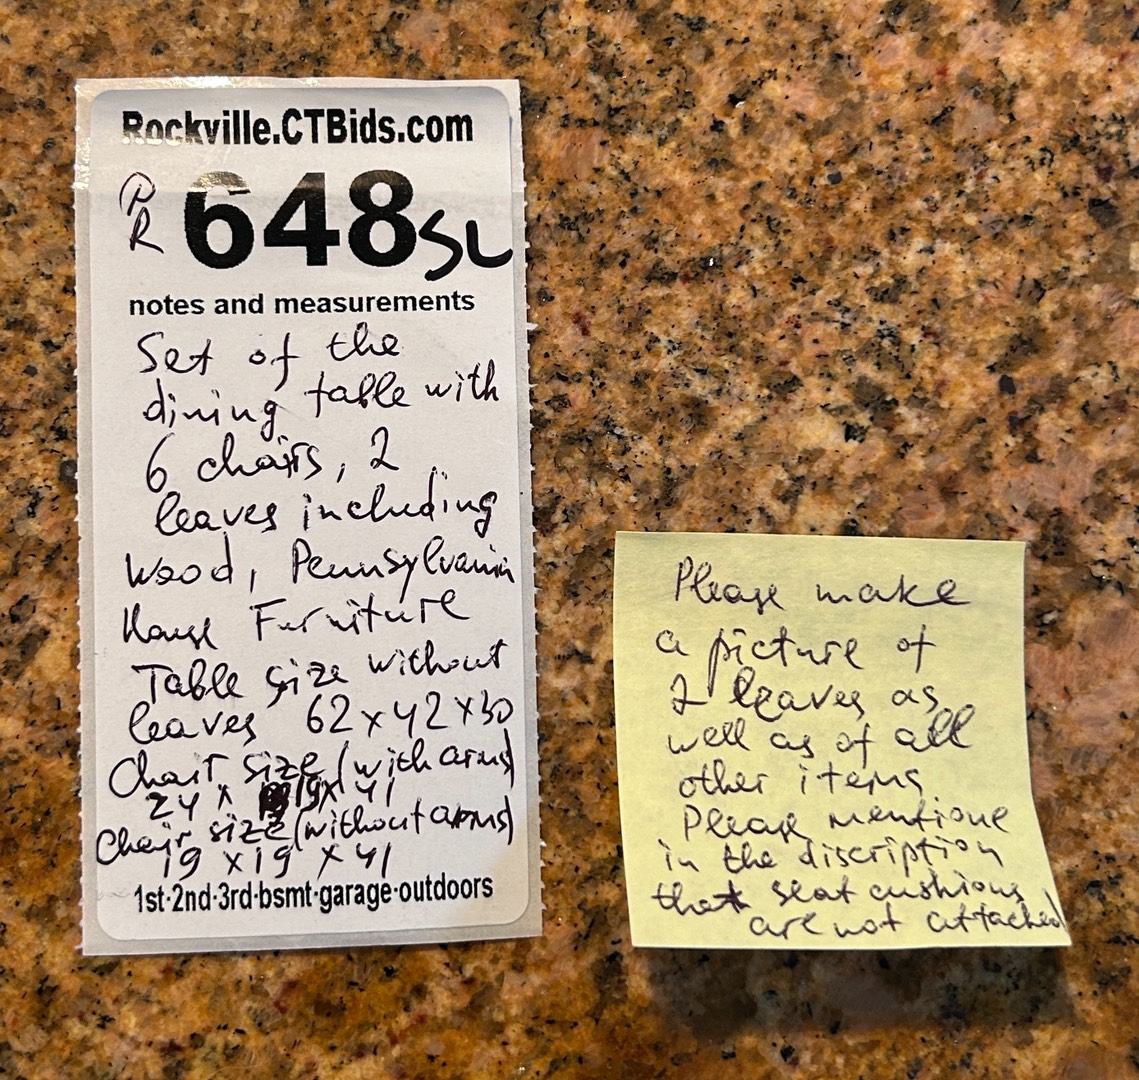 Rockville.CTBids.com
PR 648 SL
notes and measurements
Set of the
dining table with
6 chairs, 2
leaves including
Wood, Pennsylvania
House Furniture
Table size without
leaves 62 x 42 x 30
Chair size (with arms)
24 x 19 x 41
Chair size (without arms)
19 x 19 x 41
1st·2nd·3rd·bsmt·garage·outdoors
Please make
a picture of
2 leaves as
well as of all
other items
Please mentione
in the discription
that seat cushions
are not attached